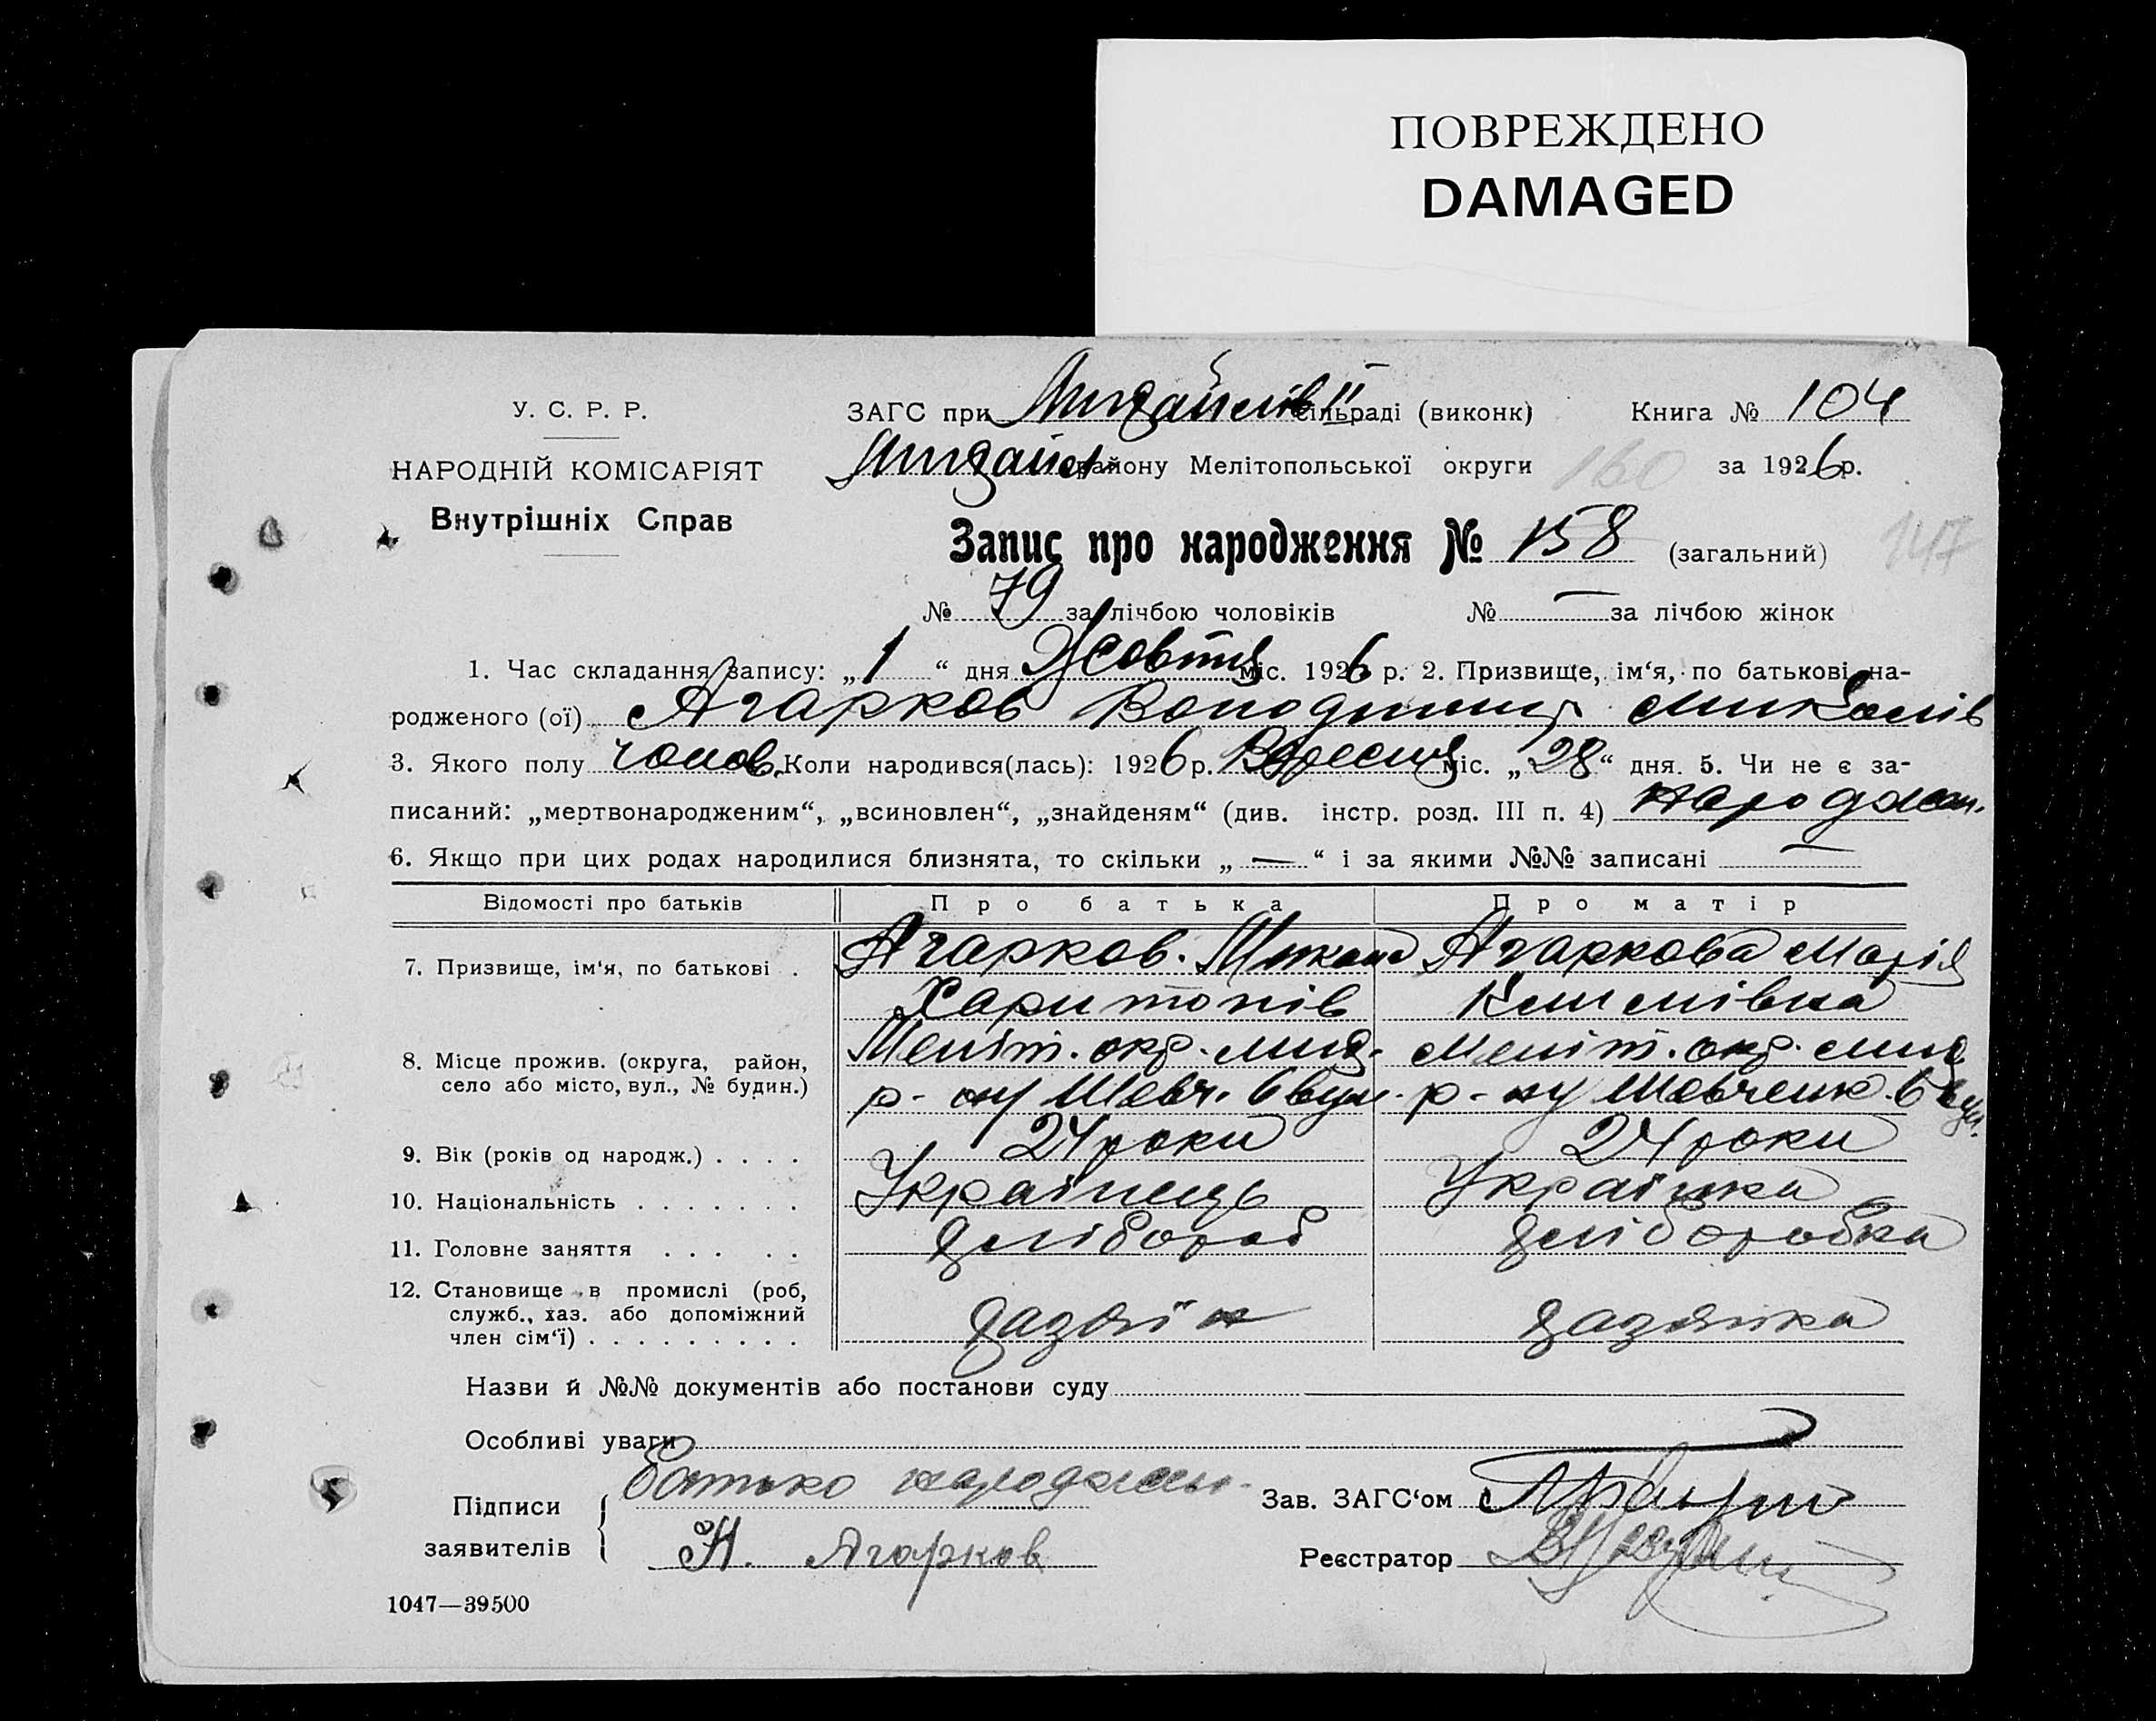 ПОВРЕЖДЕНО
DAMAGED
У. С. Р. Р.
НАРОДНІЙ КОМІСАРІЯТ
Внутрішніх Справ
ЗАГС при Михайлів II сільраді (виконк) Книга № 104
Михайл району Мелітопольської округи 160 за 1926 р.
Запис про народження № 158 (загальний) 147
№ 79 за лічбою чоловіків № — за лічбою жінок
1. Час складання запису: „1“ дня Жовтня міс. 1926 р. 2. Призвище, ім‘я, по батькові на-
родженого (ої) Агарков Володимир Миколів
3. Якого полу чолов. Коли народився(лась): 1926 р. Вересня міс. „28“ дня. 5. Чи не є за-
писаний: „мертвонародженим“, „всиновлен“, „знайденям“ (див. інстр. розд. III п. 4) Народжен.
6. Якщо при цих родах народилися близнята, то скільки „—“ і за якими №№ записані —
Відомості про батьків Про батька Про матір
7. Призвище, ім‘я, по батькові . Агарков. Микола Агаркова Марія
Харитонів
8. Місце прожив. (округа, район, Меліт. окр. Мих. Меліт. окр. Мих
село або місто, вул., № будин.) р-ну Шевч. 6 вул. р-ну Шевченк. 6 вул.
9. Вік (років од народж.) . . . . 24 роки 24 роки
10. Національність . . . . . . . Українець Українка
11. Головне заняття . . . . . хлібороб хліборобка
12. Становище в промислі (роб,
служб., хаз. або допоміжний хазяїн хазяйка
член сім‘ї) . . . . . . . . .
Назви й №№ документів або постанови суду
Особливі уваги
Батько народжен.
Підписи Зав. ЗАГС‘ом
заявителів Н. Агарков Реєстратор
1047—39500